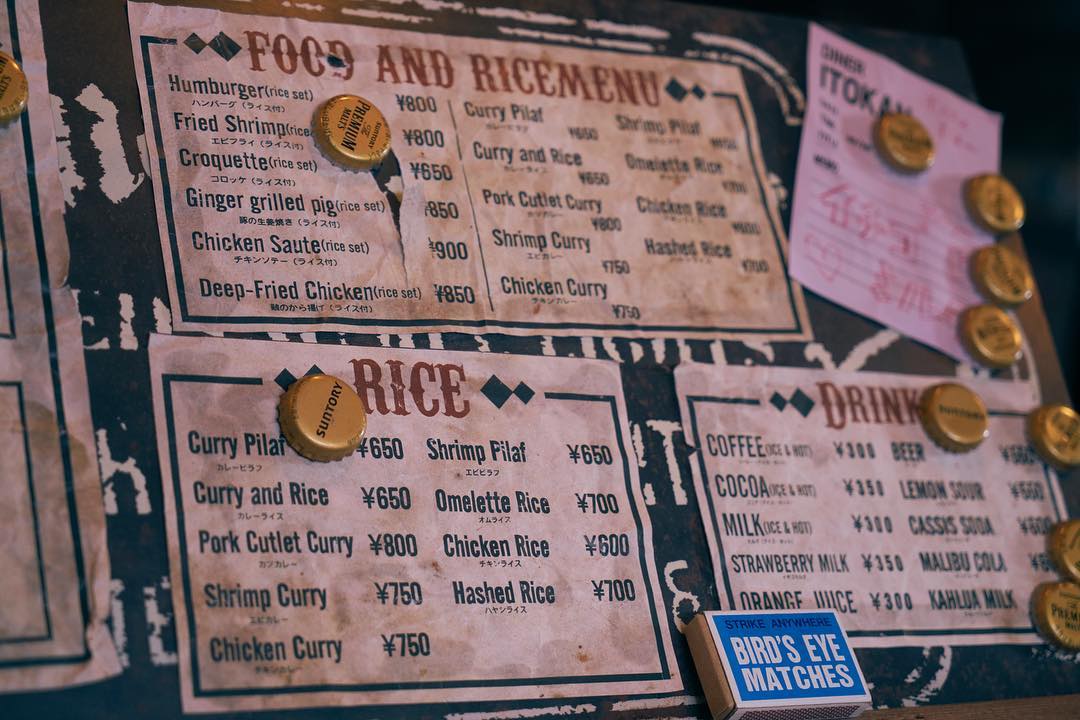 FOOD AND RICEMENU
Humburger(rice set) ¥800
ハンバーグ(ライス付)
Fried Shrimp(rice ¥800
エビフライ(ライス付)
Croquette(rice set) ¥650
コロッケ(ライス付)
Ginger grilled pig(rice set) ¥850
豚の生姜焼き(ライス付)
Chicken Saute(rice set) ¥900
チキンソテー(ライス付)
Deep-Fried Chicken(rice set) ¥850
鶏のから揚げ(ライス付)
Curry Pilaf ¥650
カレーピラフ
Curry and Rice ¥650
カレーライス
Pork Cutlet Curry ¥800
カツカレー
Shrimp Curry ¥750
エビカレー
Chicken Curry ¥750
チキンカレー
Shrimp Pilaf
Omelette Rice
Chicken Rice ¥600
Hashed Rice ¥700
PREMIUM
MALT'S
SUNTORY
DINNER
ITOKAN
RICE
SUNTORY
Curry Pilaf ¥650
カレーピラフ
Curry and Rice ¥650
カレーライス
Pork Cutlet Curry ¥800
カツカレー
Shrimp Curry ¥750
エビカレー
Chicken Curry ¥750
チキンカレー
Shrimp Pilaf ¥650
エビピラフ
Omelette Rice ¥700
オムライス
Chicken Rice ¥600
チキンライス
Hashed Rice ¥700
ハヤシライス
DRINK
COFFEE(ICE & HOT) ¥300
COCOA(ICE & HOT) ¥350
MILK(ICE & HOT) ¥300
STRAWBERRY MILK ¥350
ORANGE JUICE ¥300
BEER
LEMON SOUR
CASSIS SODA
MALIBU COLA
KAHLUA MILK
STRIKE ANYWHERE
BIRD'S EYE
MATCHES